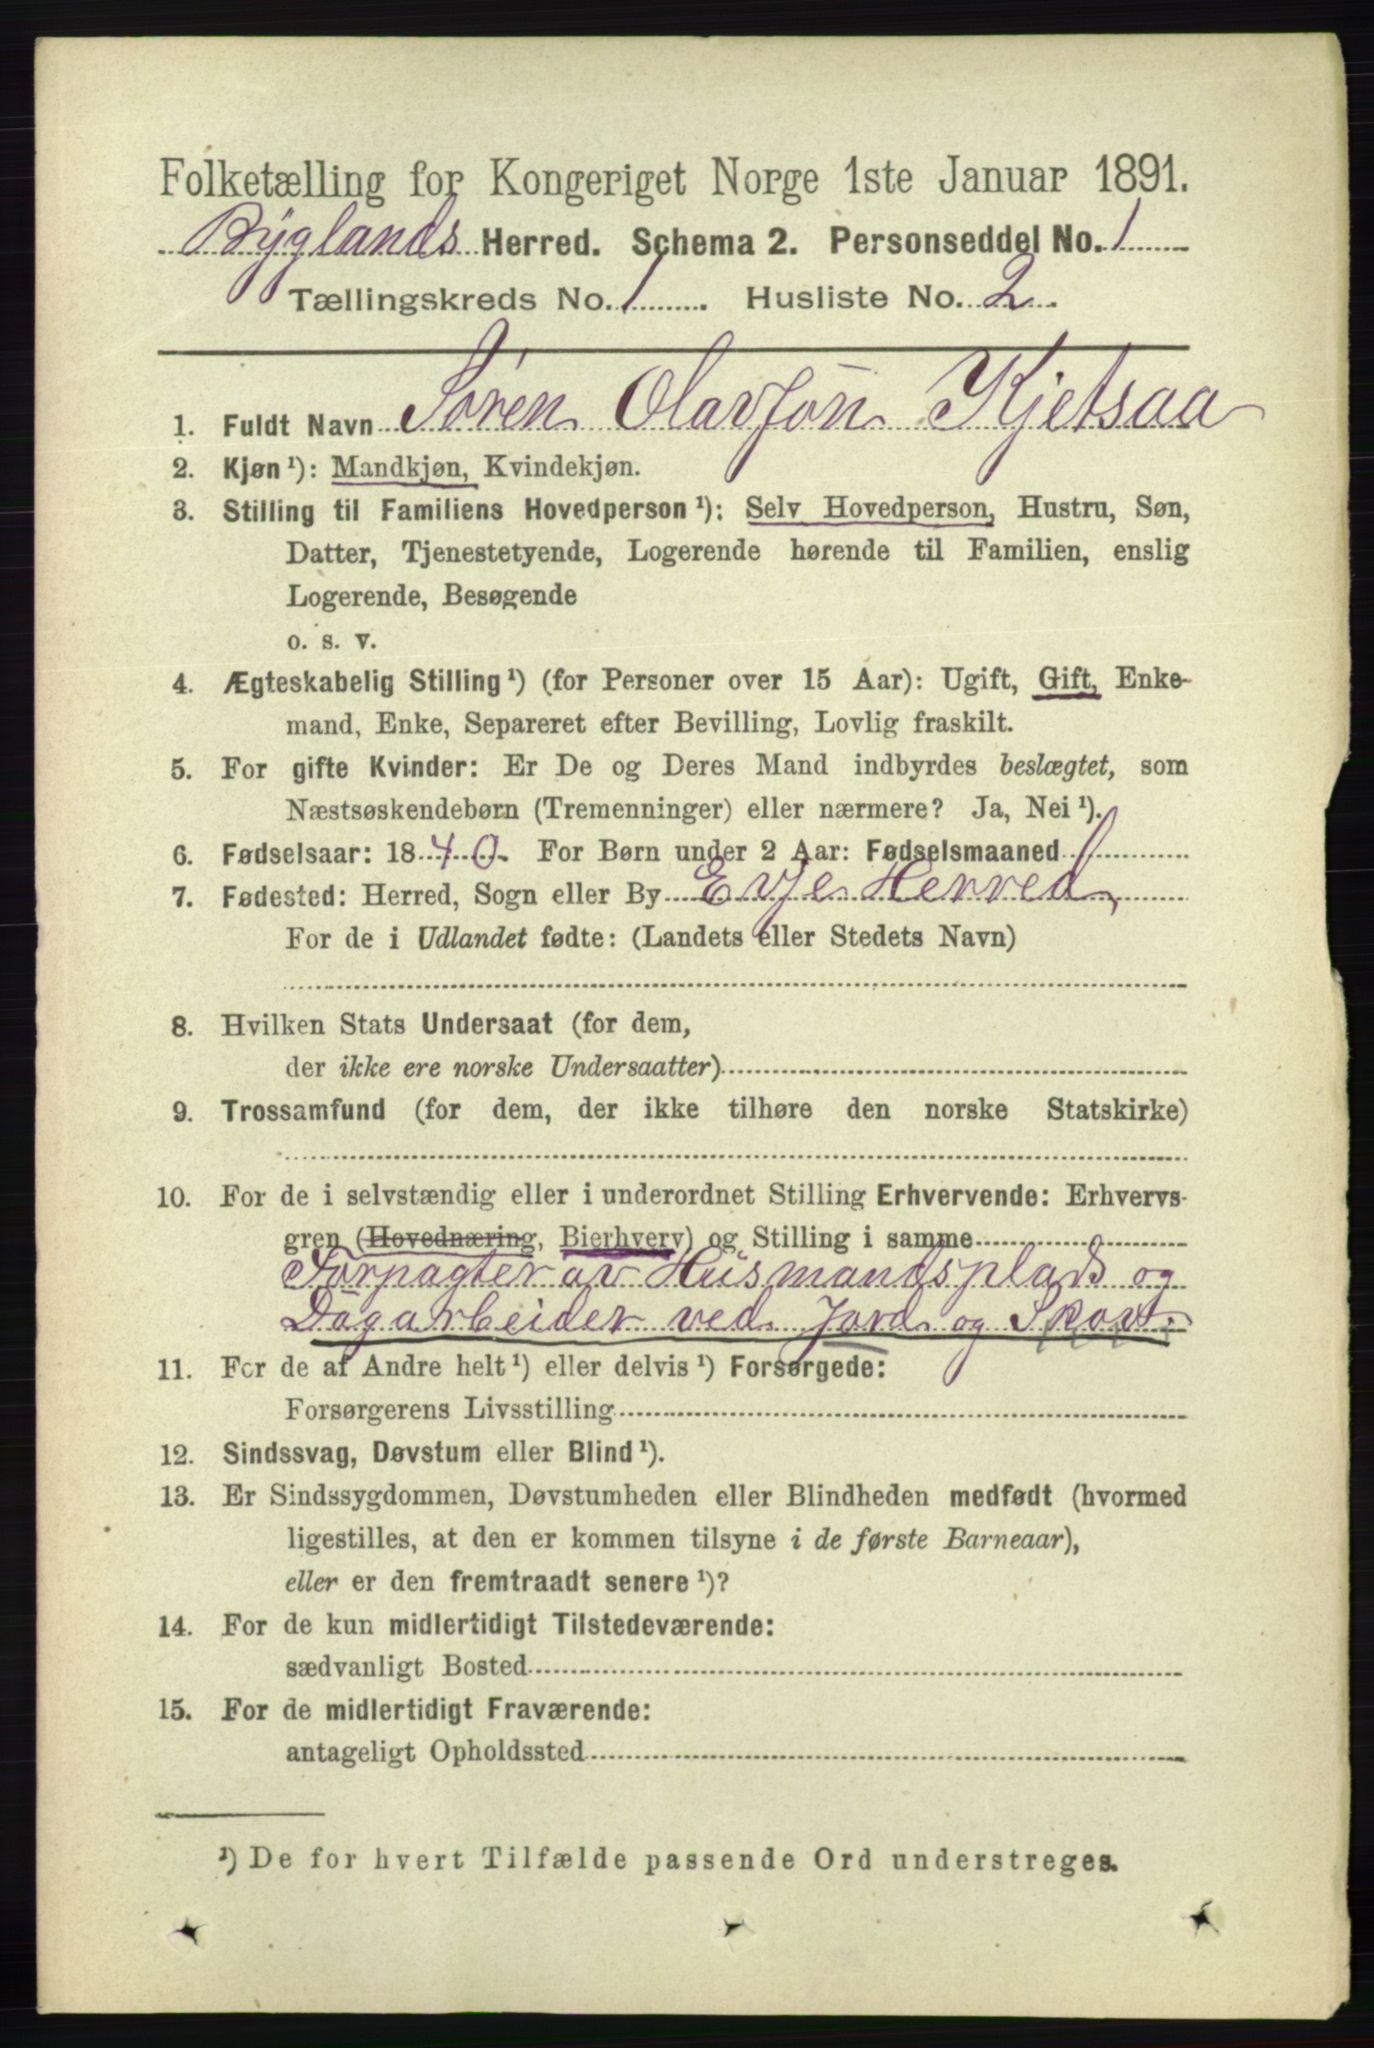 Folketælling for Kongeriget Norge 1ste Januar 1891.
Byglands Herred. Schema 2. Personseddel No. 1
Tællingskreds No. 1 Husliste No. 2
1. Fuldt Navn Søren Olavsøn Kjetsaa
2. Kjøn¹): Mandkjøn, Kvindekjøn.
3. Stilling til Familiens Hovedperson¹): Selv Hovedperson, Hustru, Søn,
Datter, Tjenestetyende, Logerende hørende til Familien, enslig
Logerende, Besøgende
o. s. v.
4. Ægteskabelig Stilling¹) (for Personer over 15 Aar): Ugift, Gift, Enke-
mand, Enke, Separeret efter Bevilling, Lovlig fraskilt.
5. For gifte Kvinder: Er De og Deres Mand indbyrdes beslægtet, som
Næstsøskendebørn (Tremenninger) eller nærmere? Ja, Nei¹).
6. Fødselsaar: 1840. For Børn under 2 Aar: Fødselsmaaned
7. Fødested: Herred, Sogn eller By Evje Herred
For de i Udlandet fødte: (Landets eller Stedets Navn)
8. Hvilken Stats Undersaat (for dem,
der ikke ere norske Undersaatter)
9. Trossamfund (for dem, der ikke tilhøre den norske Statskirke)
10. For de i selvstændig eller i underordnet Stilling Erhvervende: Erhvervs-
gren (Hovednæring, Bierhverv) og Stilling i samme
Forpagter av Husmandsplads og
Dagarbeider ved Jord og Skov.
11. For de af Andre helt¹) eller delvis¹) Forsørgede:
Forsørgerens Livsstilling
12. Sindssvag, Døvstum eller Blind¹).
13. Er Sindssygdommen, Døvstumheden eller Blindheden medfødt (hvormed
ligestilles, at den er kommen tilsyne i de første Barneaar),
eller er den fremtraadt senere¹)?
14. For de kun midlertidigt Tilstedeværende:
sædvanligt Bosted
15. For de midlertidigt Fraværende:
antageligt Opholdssted
¹) De for hvert Tilfælde passende Ord understreges.